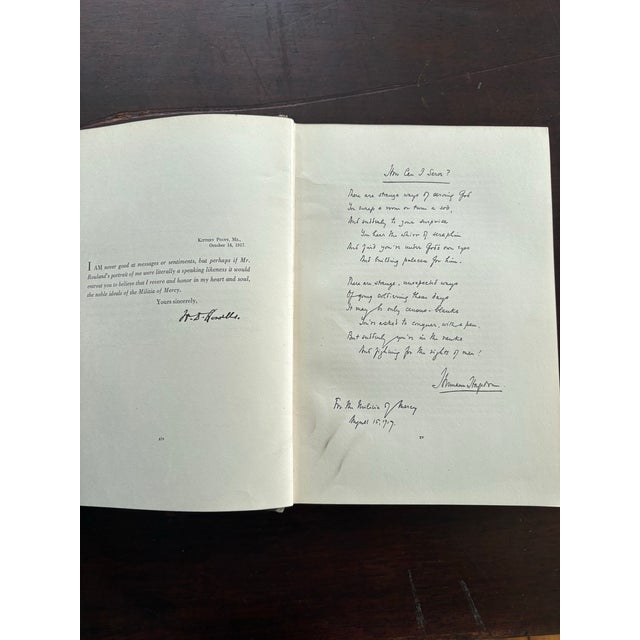 Kittery Point, Me.,
October 14, 1917.
I AM never good at messages or sentiments, but perhaps if Mr.
Rouland's portrait of me were literally a speaking likeness it would
entreat you to believe that I revere and honor in my heart and soul,
the noble ideals of the Militia of Mercy.
Yours sincerely,
W. D. Howells.
xiv
How Can I Serve?
There are strange ways of serving God
You sweep a room or turn a sod,
And suddenly to your surprise
You hear the whirr of seraphim
And find you're under God's own eyes
And building palaces for him.
There are strange, unexpected ways
Of going soldiering these days
It may be only census-blanks
You're asked to conquer, with a pen,
But suddenly you're in the ranks
And fighting for the rights of men!
Hermann Hagedorn.
For the Militia of Mercy
August 15, 1917.
xv